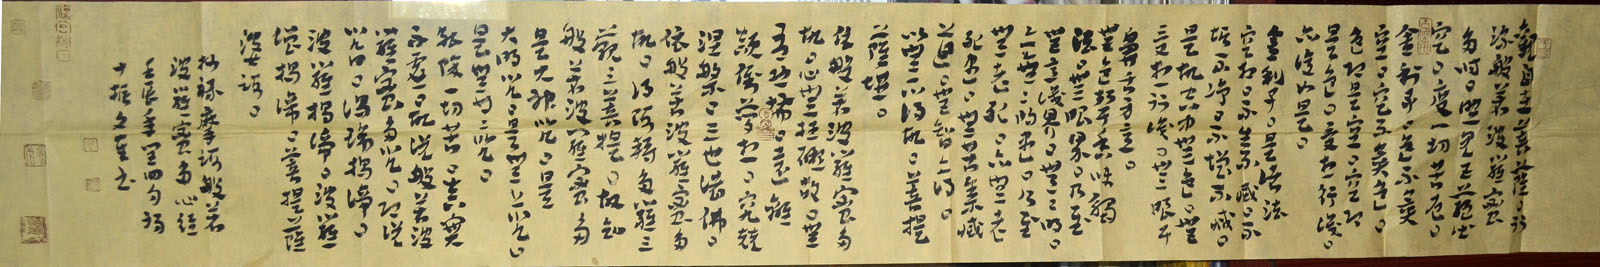 觀自在菩薩。行
深般若波羅蜜
多時。照見五蘊皆
空。度一切苦厄。
舍利子。色不異
空。空不異色。
色即是空。空即
是色。受想行識。
亦復如是。
舍利子。是諸法
空相。不生不滅。不
垢不淨。不增不減。
是故空中無色。無
受想行識。無眼耳
鼻舌身意。
無色聲香味觸
法。無眼界。乃至
無意識界。無無明。
亦無無明盡。乃至
無老死。亦無老
死盡。無苦集滅
道。無智亦無得。
以無所得故。菩提
薩埵。
依般若波羅蜜多
故。心無罣礙故。無
有恐怖。遠離
顛倒夢想。究竟
涅槃。三世諸佛。
依般若波羅蜜多
故。得阿耨多羅三
藐三菩提。故知
般若波羅蜜多
是大神咒。是
大明咒。是無上咒。
是無等等咒。
能除一切苦。真實
不虛。故說般若波
羅蜜多咒。即說
咒曰。揭諦揭諦。
波羅揭諦。波羅
僧揭諦。菩提薩
婆訶。
摩訶般若
波羅蜜多心經
壬辰年
書